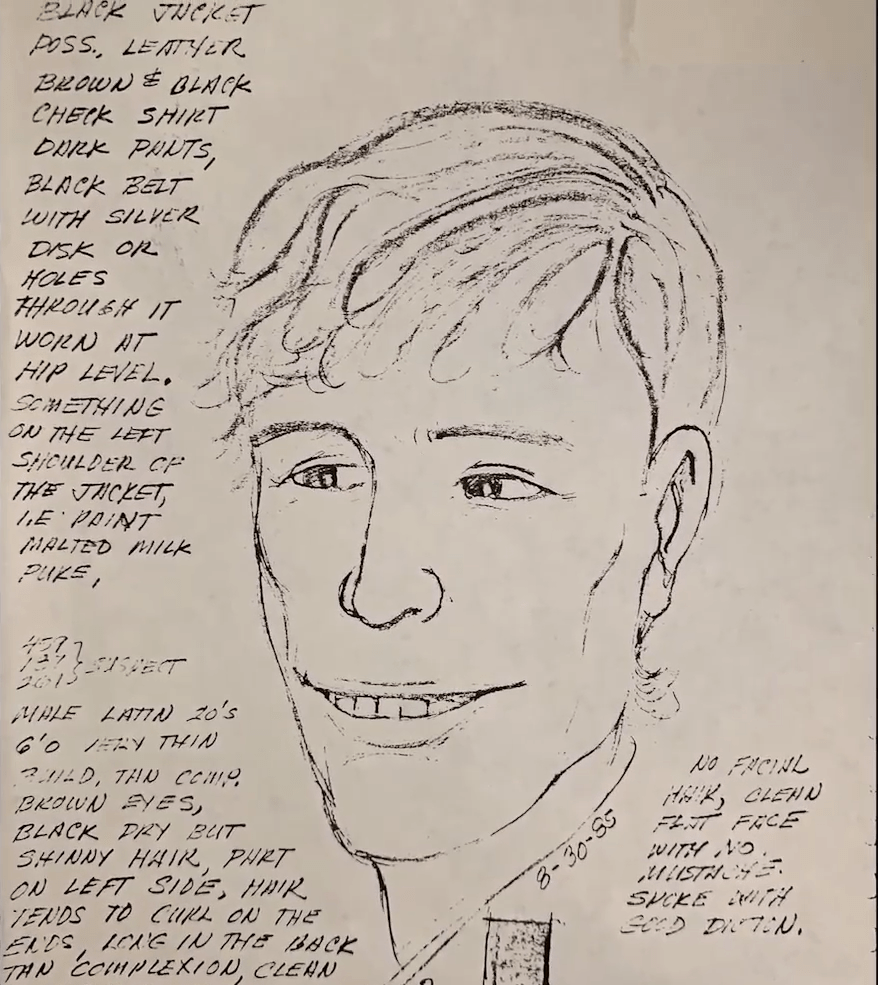 BLACK JACKET
POSS., LEATHER
BROWN & BLACK
CHECK SHIRT
DARK PANTS,
BLACK BELT
WITH SILVER
DISK OR
HOLES
THROUGH IT
WORN AT
HIP LEVEL.
SOMETHING
ON THE LEFT
SHOULDER OF
THE JACKET,
I.E PAINT
MALTED MILK
PUKE,
SUSPECT
MALE LATIN 20'S
6'0 VERY THIN
BUILD, TAN COMP.
BROWN EYES,
BLACK DRY BUT
SHINNY HAIR, PART
ON LEFT SIDE, HAIR
TENDS TO CURL ON THE
ENDS, LONG IN THE BACK
TAN COMPLEXION, CLEAN
8-30-85
NO FACIAL
HAIR, CLEAN
FLAT FACE
WITH NO.
MUSTACHE.
SPOKE WITH
GOOD DICTION.